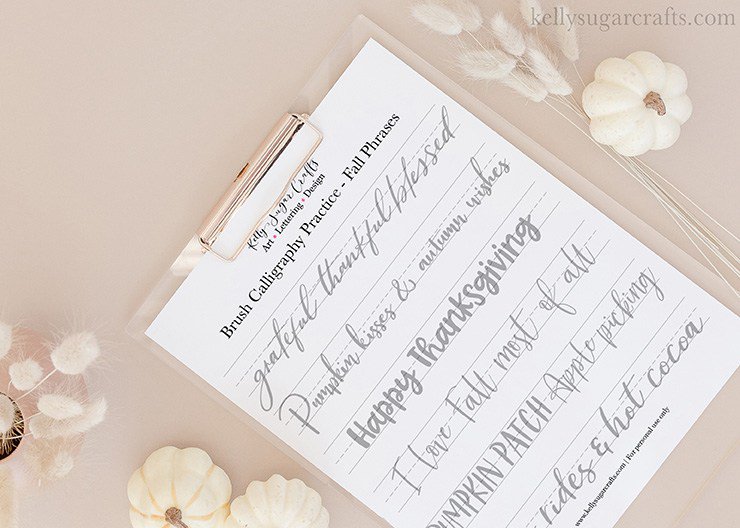 kellysugarcrafts.com
Kelly Sugar Crafts
Art • Lettering • Design
Brush Calligraphy Practice - Fall Phrases
grateful thankful blessed
Pumpkin kisses & autumn wishes
Happy Thanksgiving
I love Fall most of all
PUMPKIN PATCH Apple picking
rides & hot cocoa
www.kellysugarcrafts.com | For personal use only